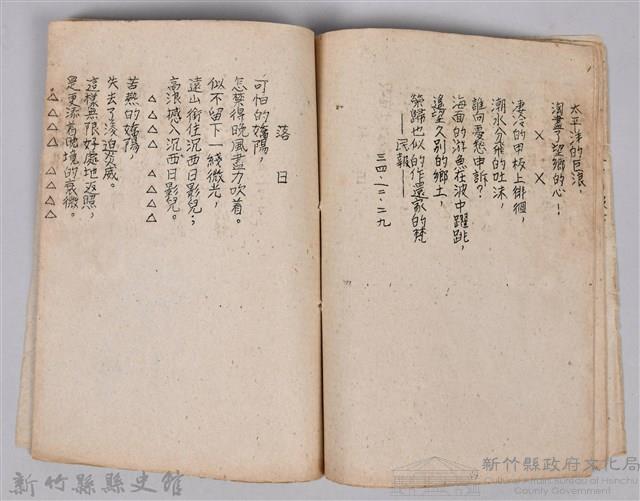 太平洋的巨浪，
淘盡了望鄉的心！
× ×
淒冷的甲板上徘徊，
潮水分飛的吐沫，
誰向憂愁申訴？
海面的游魚在波中躍跳，
遙望久別的鄉土，
策歸也似的作還家的梵
——民報——
三四、八、二、二九
落日
可怕的驕陽，
怎禁得晚風盡力吹着。
似不留下一綫微光，
遠山銜住沉西日影兒；
高浪撼入沉西日影兒。
△△△△△△△
苦熱的驕陽，
失去了凌迫炎威。
這樣無限好處地返照，
是更添看晚境的衰微。
△△△△△△△
新竹縣縣史館
新竹縣政府文化局
Cultural Affairs Bureau of Hsinchu
County Government